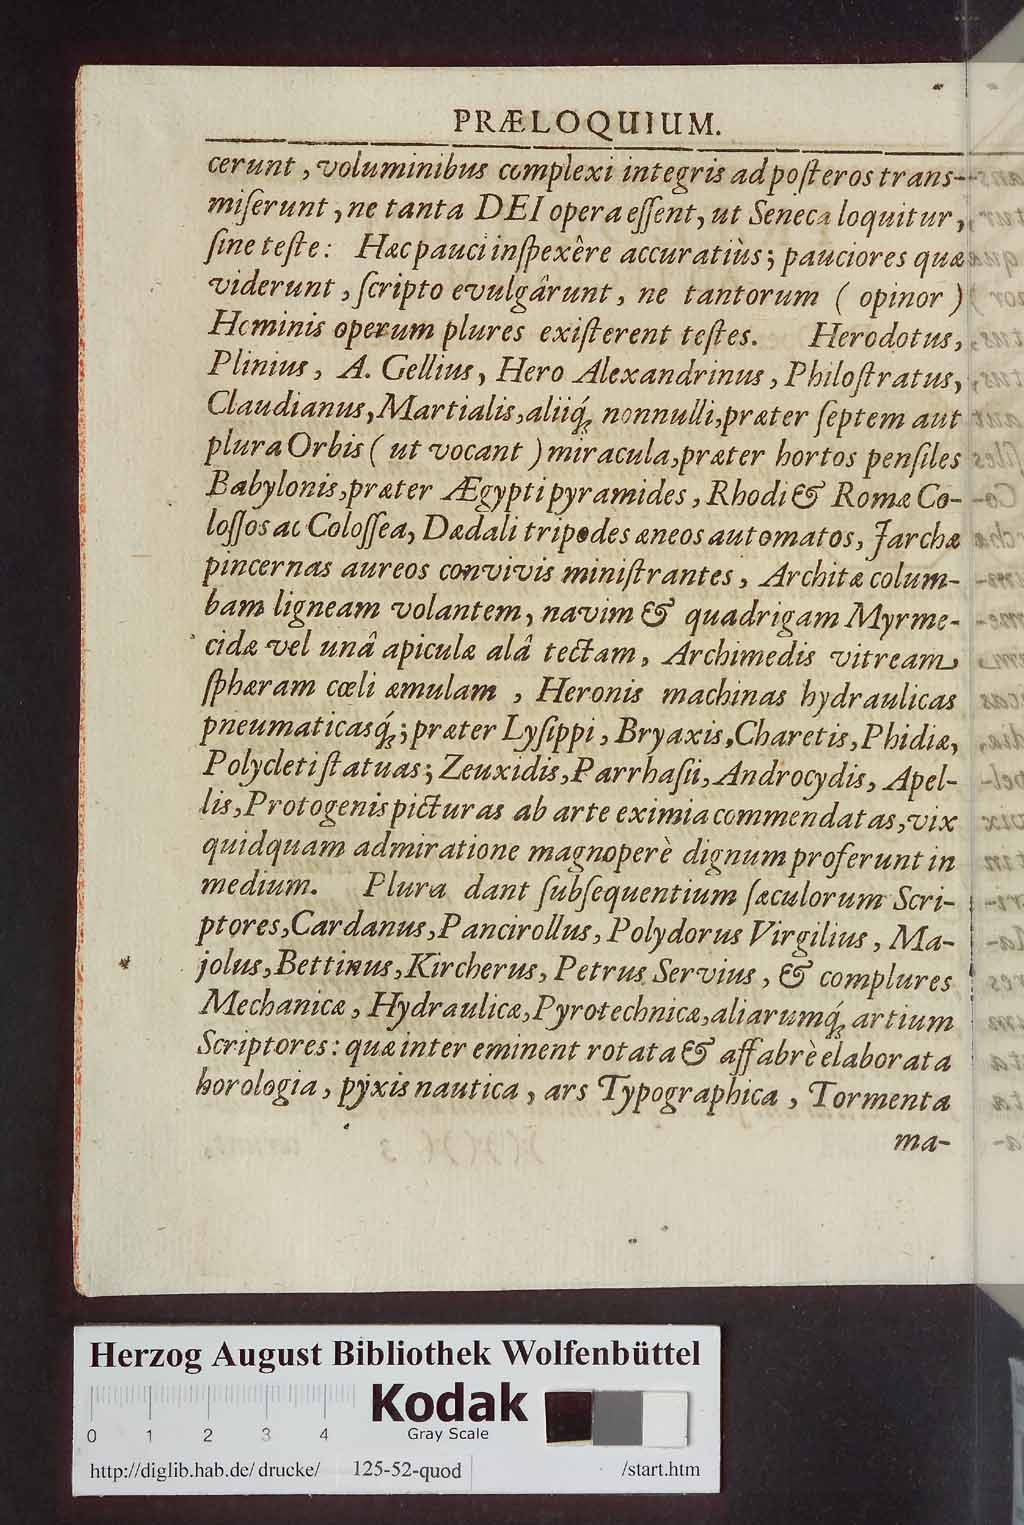 PRÆLOQUIUM.
cerunt, voluminibus complexi integris ad poſteros trans-
miſerunt, ne tanta DEI opera eſſent, ut Seneca loquitur,
ſine teſte: Hæc pauci inſpexêre accuratiùs; pauciores quæ
viderunt, ſcripto evulgârunt, ne tantorum (opinor)
Hominis operum plures exiſterent teſtes. Herodotus,
Plinius, A. Gellius, Hero Alexandrinus, Philoſtratus,
Claudianus, Martialis, aliiq́; nonnulli, præter ſeptem aut
plura Orbis (ut vocant) miracula, præter hortos penſiles
Babylonis, præter Ægypti pyramides, Rhodi & Romæ Co-
loſſos ac Coloſſea, Dædali tripodes æneos automatos, Jarchæ
pincernas aureos convivis miniſtrantes, Architæ colum-
bam ligneam volantem, navim & quadrigam Myrme-
cidæ vel unâ apiculæ alâ tectam, Archimedis vitream
ſphæram cœli æmulam, Heronis machinas hydraulicas
pneumaticasq́;; præter Lyſippi, Bryaxis, Charetis, Phidiæ,
Polycleti ſtatuas; Zeuxidis, Parrhaſii, Androcydis, Apel-
lis, Protogenis picturas ab arte eximia commendatas, vix
quidquam admiratione magnoperè dignum proferunt in
medium. Plura dant ſubſequentium ſæculorum Scri-
ptores, Cardanus, Pancirollus, Polydorus Virgilius, Ma-
jolus, Bettinus, Kircherus, Petrus Servius, & complures
Mechanicæ, Hydraulicæ, Pyrotechnicæ, aliarumq́; artium
Scriptores: quæ inter eminent rotata & affabrè elaborata
horologia, pyxis nautica, ars Typographica, Tormenta
ma-
Herzog August Bibliothek Wolfenbüttel
Kodak
Gray Scale
0 1 2 3 4
http://diglib.hab.de/drucke/ 125-52-quod /start.htm